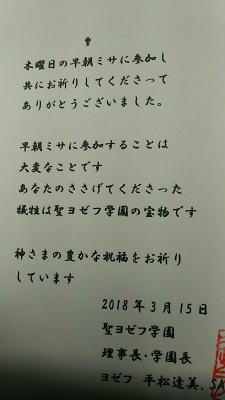 木曜日の早朝ミサに参加し
共にお祈りしてくださって
ありがとうございました。
早朝ミサに参加することは
大変なことです
あなたのささげてくださった
犠牲は聖ヨゼフ学園の宝物です
神さまの豊かな祝福をお祈り
しています
2018年3月15日
聖ヨゼフ学園
理事長・学園長
ヨゼフ 平松達美,SA